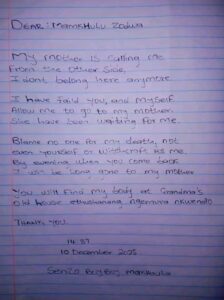 DEAR: Mamkhulu Zodwa
My Mother is calling me
From the other side,
I dont belong here anymore
I have faild you, and myself
Allow me to go to my mother
She have been waiting for me.
Blame no one for my death, not
even yourself or
By evening when you come back
I will be long gone to my mother
You will find my body at Grandma's
old house
Thank you.
14:37
10 December 2025